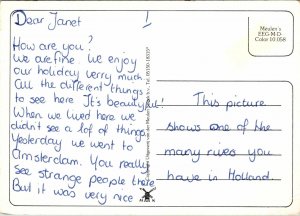 Dear Janet !
How are you?
We are fine. We enjoy
our holiday verry much.
All the different things
to see here It's beautyful!
When we lived here we
didn't see a lof of things
Yesterday we went to
Amsterdam. You really
see strange people there
But it was very nice
Meulen's
EEG-M-D
Color 10.058
This picture
shows one of the
many rives you
have in Holland.